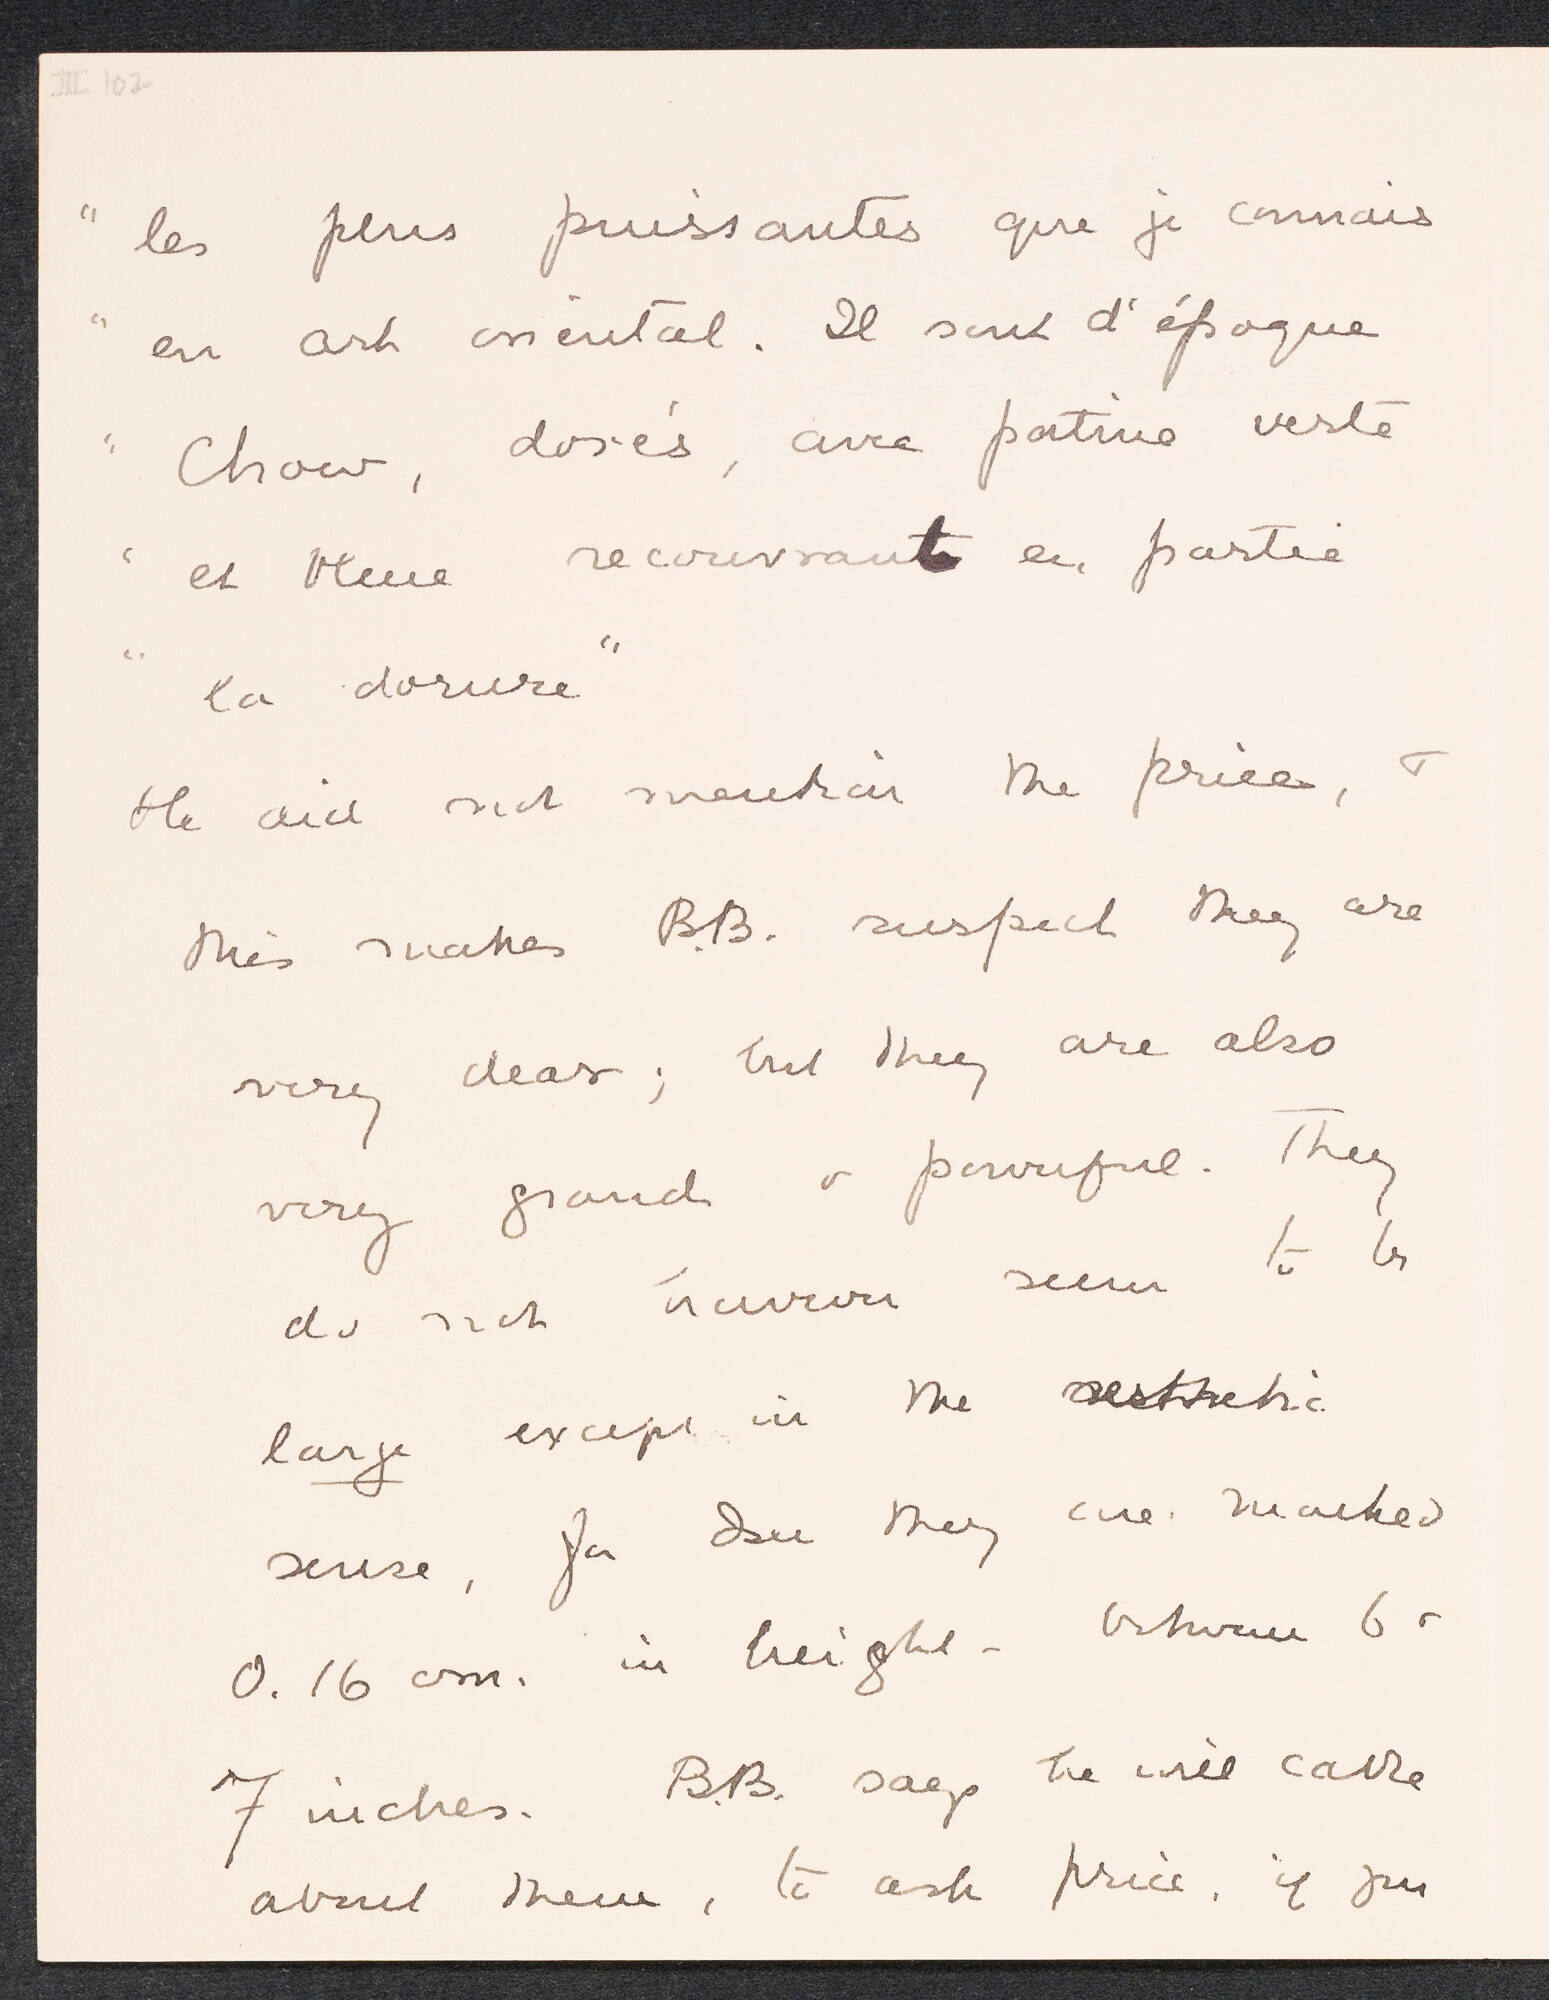 III 102
" les plus puissantes que je connais
" en art oriental. Il sont d'époque
" Chow, dorés, avec patine verte
" et bleue recouvrant en partie
" la dorure"
He did not mention the price, &
this makes B.B. suspect they are
very dear; but they are also
very grand & powerful. They
do not however seem to be
large except in the aesthetic
sense, for I see they are marked
0.16 cm. in height - between 6 &
7 inches. B.B. says he will cable
about them, to ask price, if you